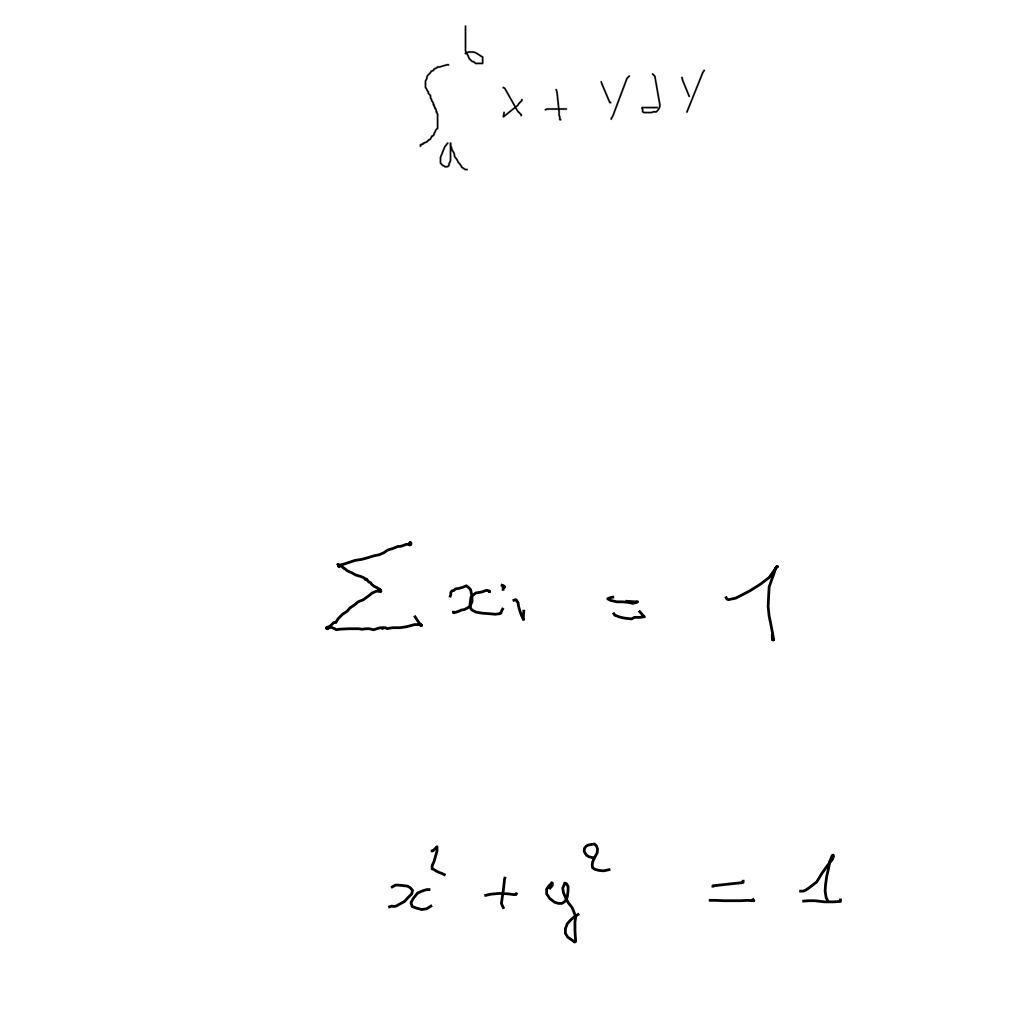 ∫_a^b x + y dy
∑ x_i = 1
x² + y² = 1